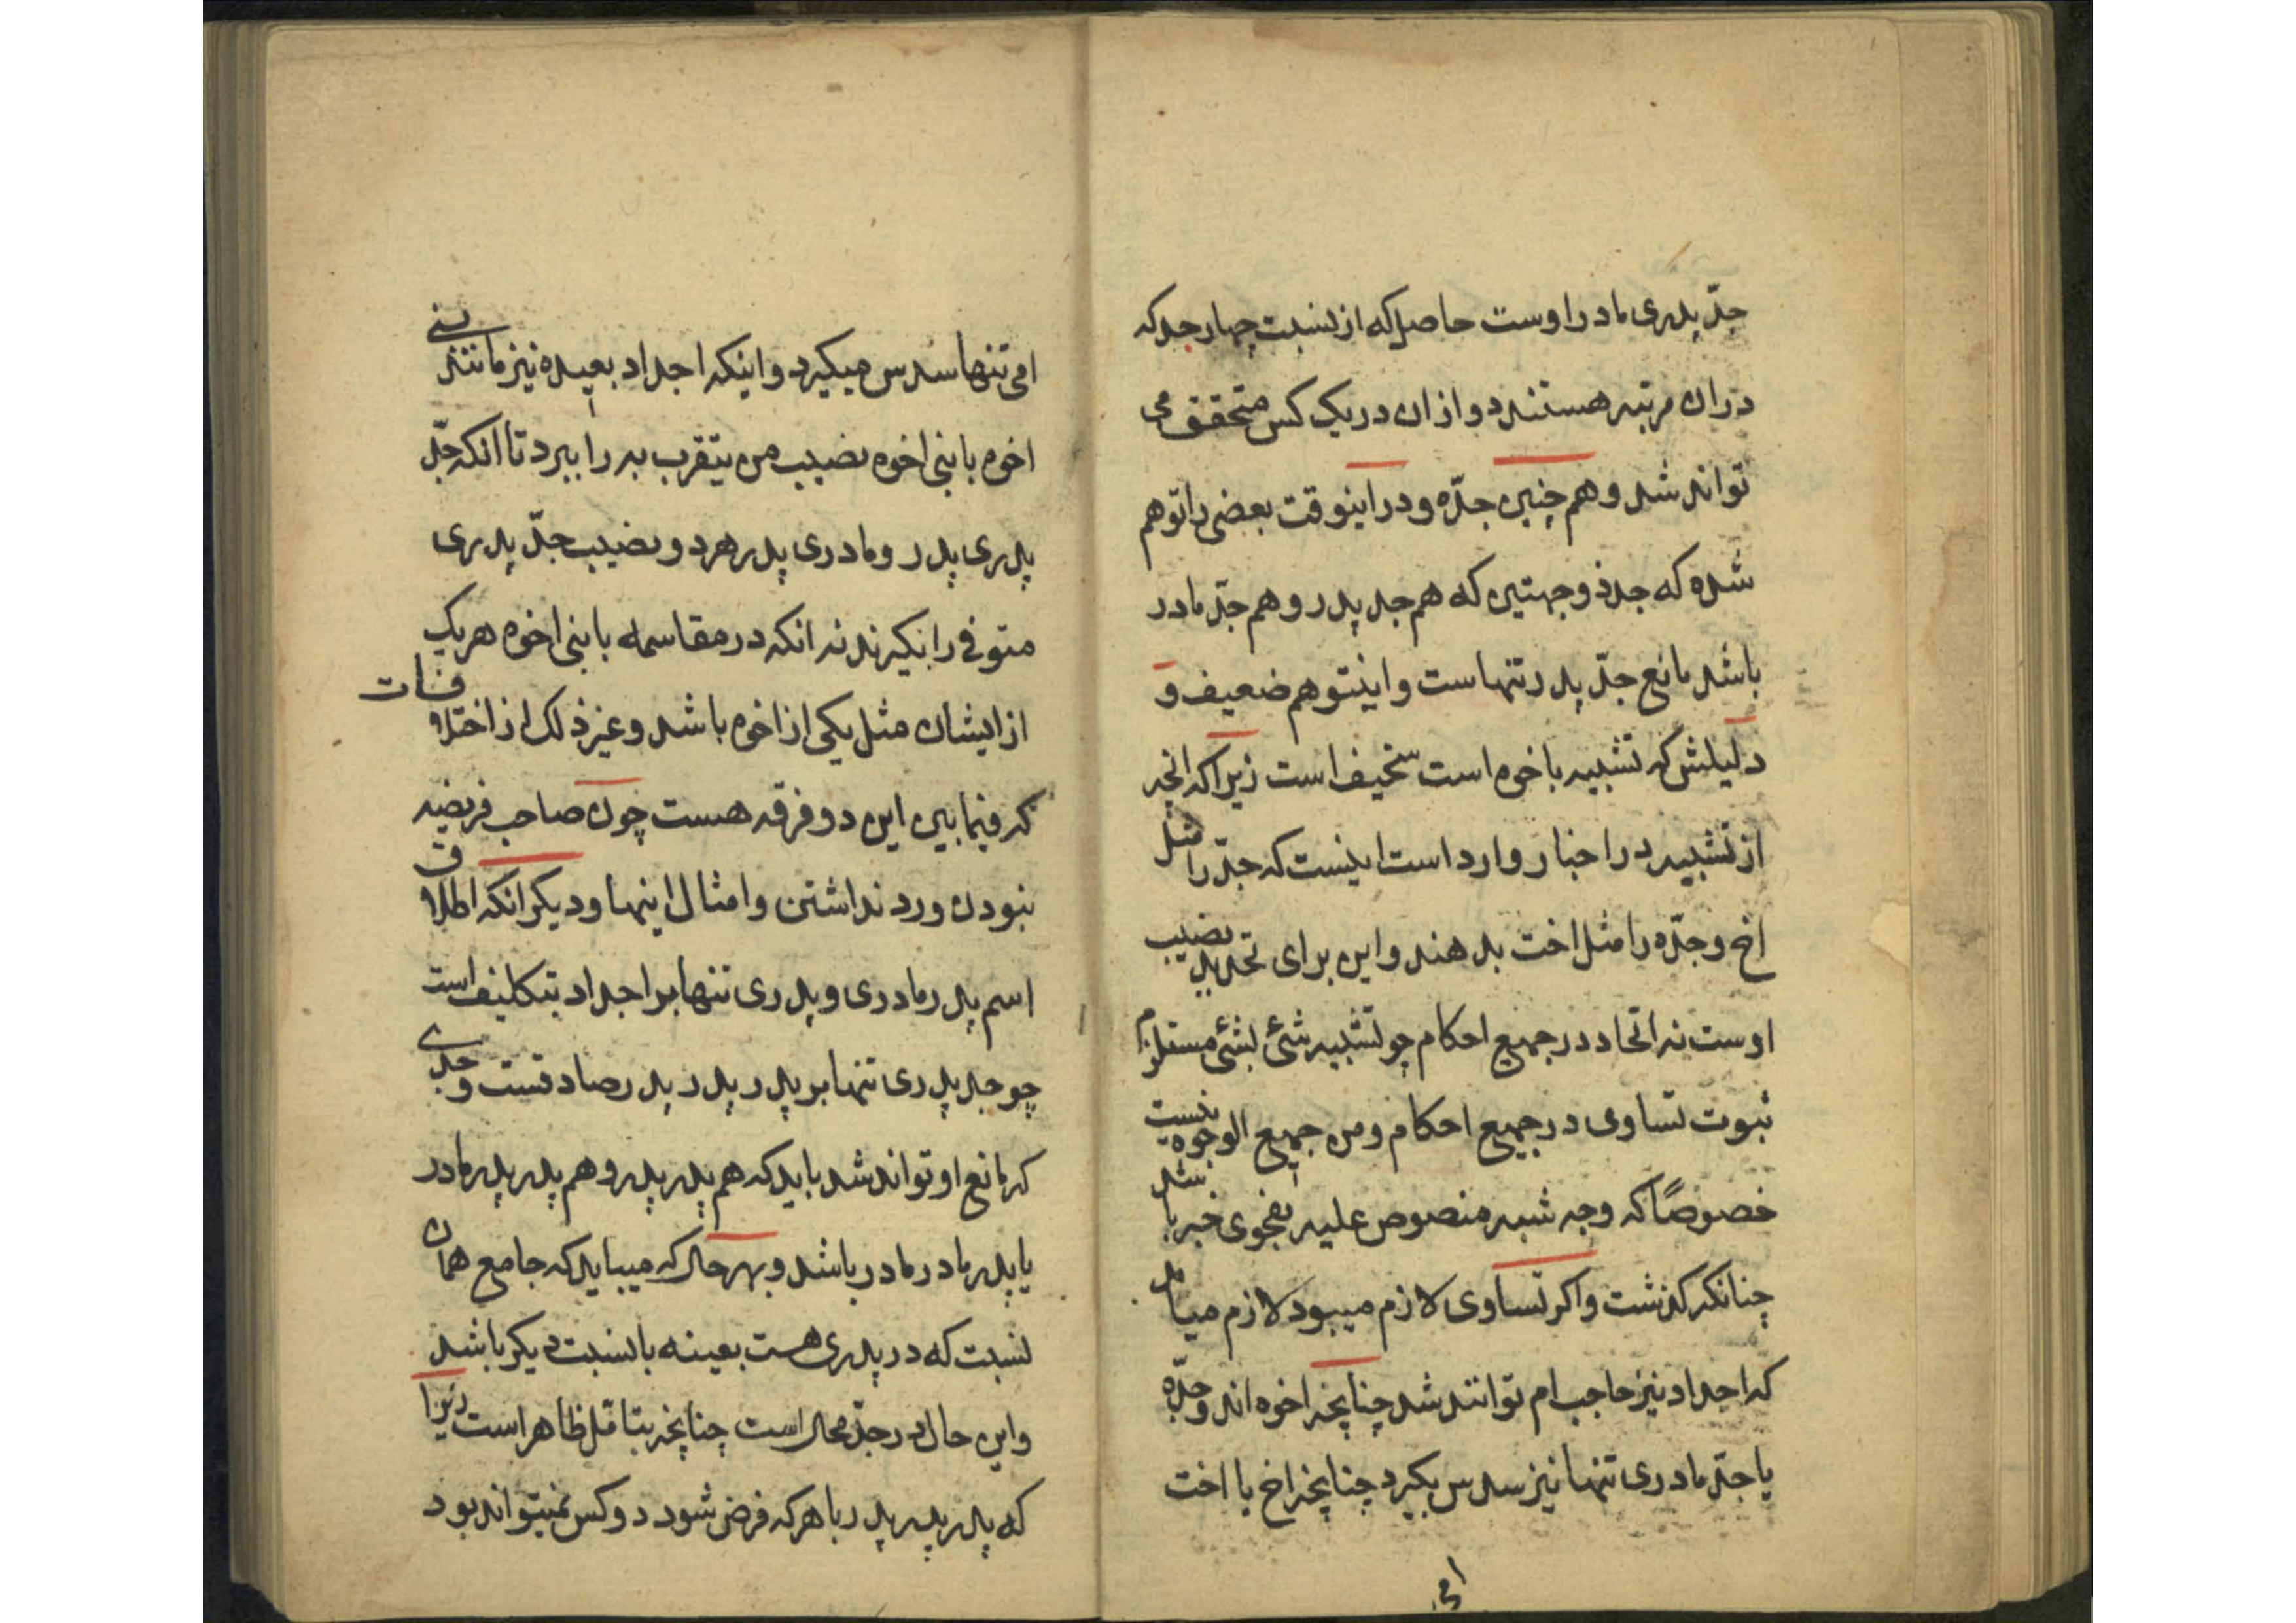 جدّ پدری مادر اوست حاصل که از نسبت چهار جد که
در ان مرتبه هستند دو از ان در یک کس متحقق می
تواند شد و هم چنین جدّه و در اینوقت بعضی را توهم
شده که جد ذو جهتین که هم جد پدر و هم جدّ مادر
باشد مانع جدّ پدر تنهاست و اینتوهم ضعیف و
دلیلش که تشبیه باخوه است سخیف است زیرا که انچه
از تشبیه در اخبار وارد است اینست که جدّ را مثل
اخ و جدّه را مثل اخت بدهند و این برای تحدید نصیب
اوست نه اتحاد در جمیع احکام چو تشبیه شئ بشئ مستلزم
ثبوت تساوی در جمیع احکام و من جمیع الوجوه نیست
خصوصًا که وجه شبه منصوص علیه بفحوی خبر باشد
چنانکه گذشت و اکر تساوی لازم میبود لازم میامد
که اجداد نیز حاجب ام توانند شد چنانچه اخوه اند و جدّه
یا جدّ مادری تنها نیز سدس بکیرد چنانچه اخ یا اخت
امی
امی تنها سدس میکیرد و اینکه اجداد بعیده نیز مانند بنی
اخوه با بنی اخوه نصیب من یتقرب به را ببرد تا انکه جدّ
پدری پدر و مادری پدر هر دو نصیب جدّ پدری
متوفی را بکیرند نه انکه در مقاسمه با بنی اخوه هر یک
از ایشان مثل یکی از اخوه باشد و غیر ذلک از اختلافات
که فیما بین این دو فرقه هست چون صاحب فریضه
نبودن و رد نداشتن و امثال اینها و دیکر انکه اطلاق
اسم پدر مادری و پدری تنها بر اجداد بتکلیف است
چو جد پدری تنها بر پدر پدر پدر صادقست و جدی
که مانع او تواند شد باید که هم پدر پدر و هم پدر پدر مادر
یا پدر مادر مادر باشد و بهر حال که میباید که جامع همان
نسبت که در پدری هست بعینه با نسبت دیکر باشد
و این حال در جدّ محال است چنانچه بتامّل ظاهر است زیرا
که پدر پدر پدر با هر که فرض شود دو کس نمیتواند بود